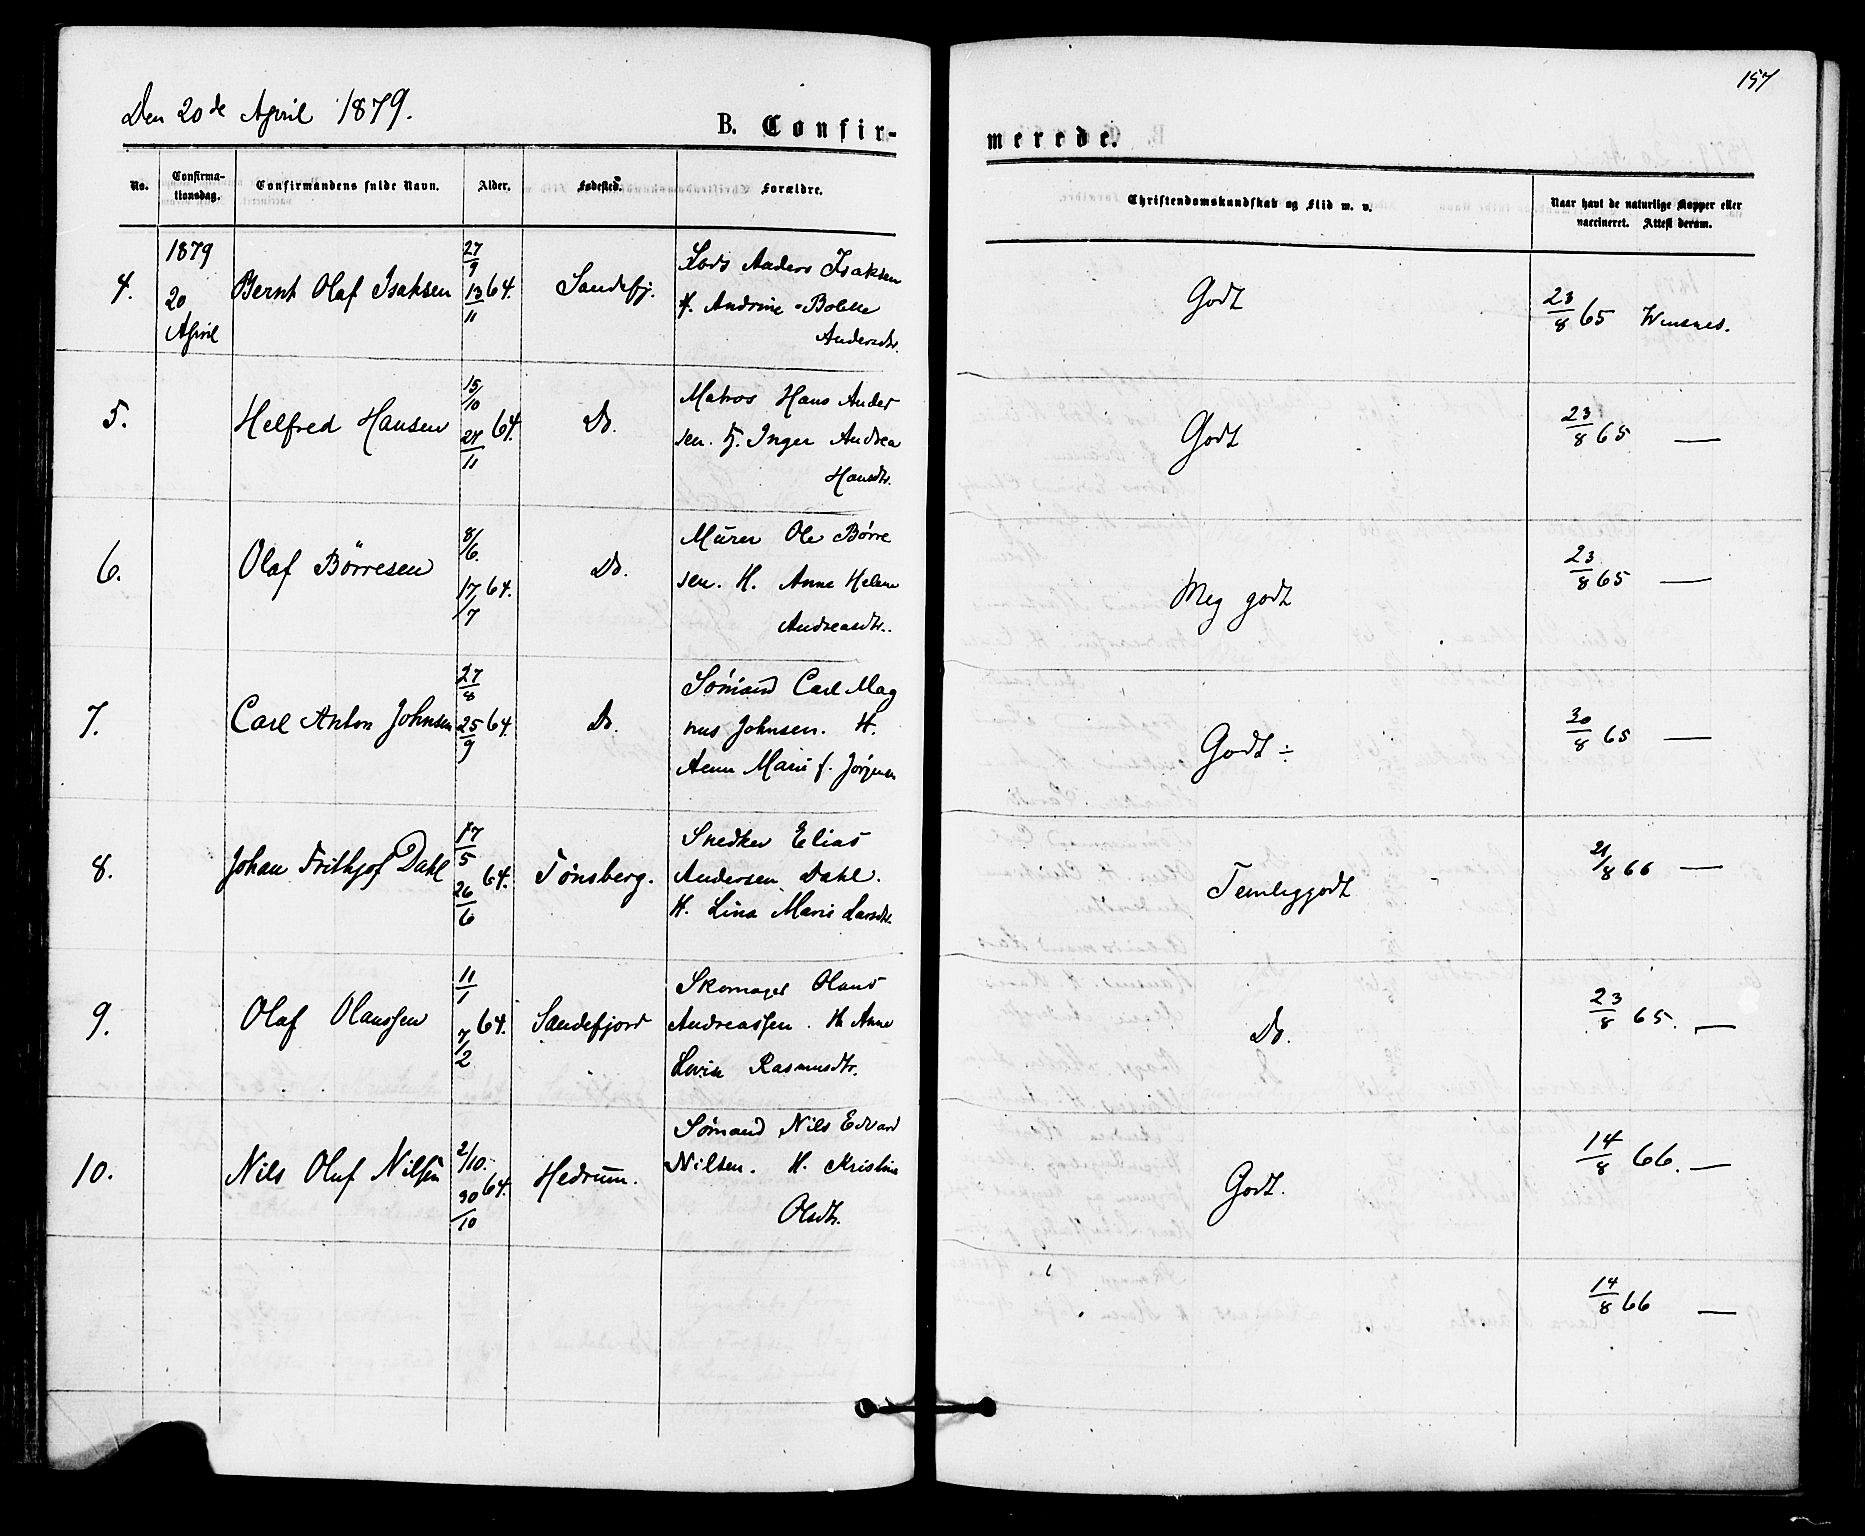 157
Den 20de April 1879.
B. Confir-
merede.
No.
Confirma-
tionsdag.
Confirmandens fulde Navn.
Alder.
Fødested.
Forældre.
Christendomskundskab og Flid m. v.
Naar havt de naturlige Kopper eller
vaccineret. Attest derom.
1879
20
April
4.
Bernt Olaf Isaksen
27/9
13/11 64.
Sandefj.
Lods Anders Isaksen
H. Andrine Bolette
Andersdtr.
Godt
23/8 65
5.
Helfred Hansen
15/10
27/11 64.
Do.
Matros Hans Ander
sen. H. Inger Andrea
Hansdtr.
Godt
23/8 65 —
6.
Olaf Börresen
8/6.
17/7 64.
Do.
Murer Ole Børre
sen. H. Anne Helene
Andreasdtr.
Meg godt
23/8 65 —
7.
Carl Anton Johnsen
27/8
25/9 64.
Do.
Sömand Carl Mag
nus Johnsen. H.
Anne Marie f. Jörgensen
Godt ÷
30/8 65 —
8.
Johan Frithjof Dahl
17/5
26/6 64.
Tønsberg.
Snedker Elias
Andersen Dahl.
H. Lina Marie Larsdtr.
Temlig godt
21/8 66 —
9.
Olaf Olaussen
11/1
7/2 64.
Sandefjord
Skomager Olaus
Andreassen. H. Anne
Lovise Rasmusdtr.
Do.
23/8 65. —
10.
Nils Oluf Nilsen
2/10.
30/10 64.
Hedrum.
Sömand Nils Edvard
Nilsen. H. Kristine
Olsdtr.
Godt.
14/8 66. —
14/8 66 —